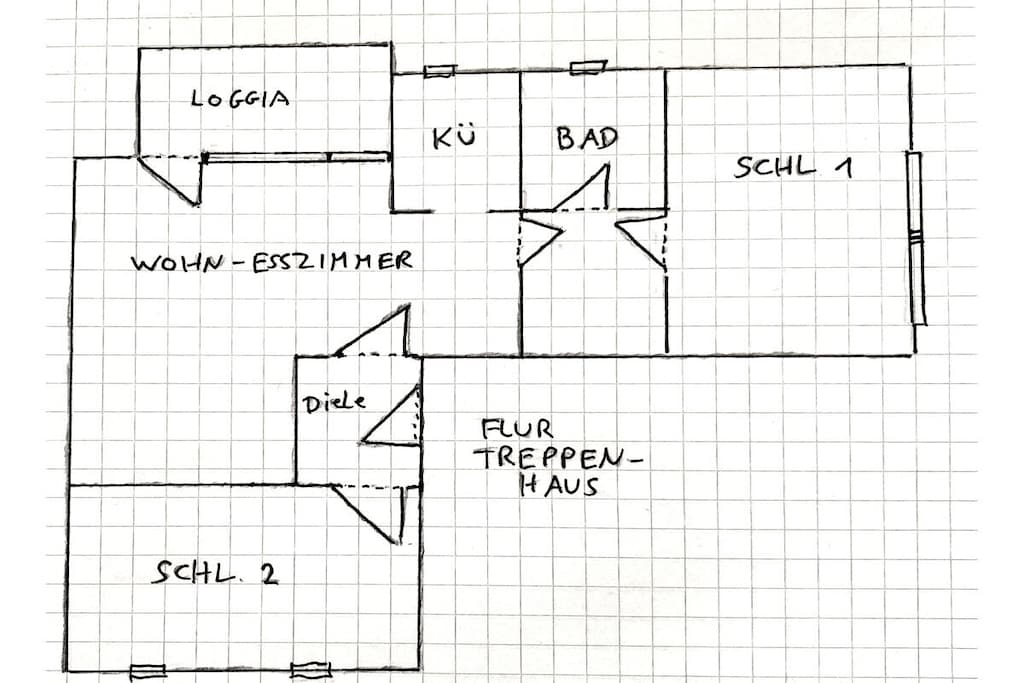 LOGGIA
KÜ
BAD
SCHL 1
WOHN-ESSZIMMER
Diele
FLUR
TREPPEN-
HAUS
SCHL. 2